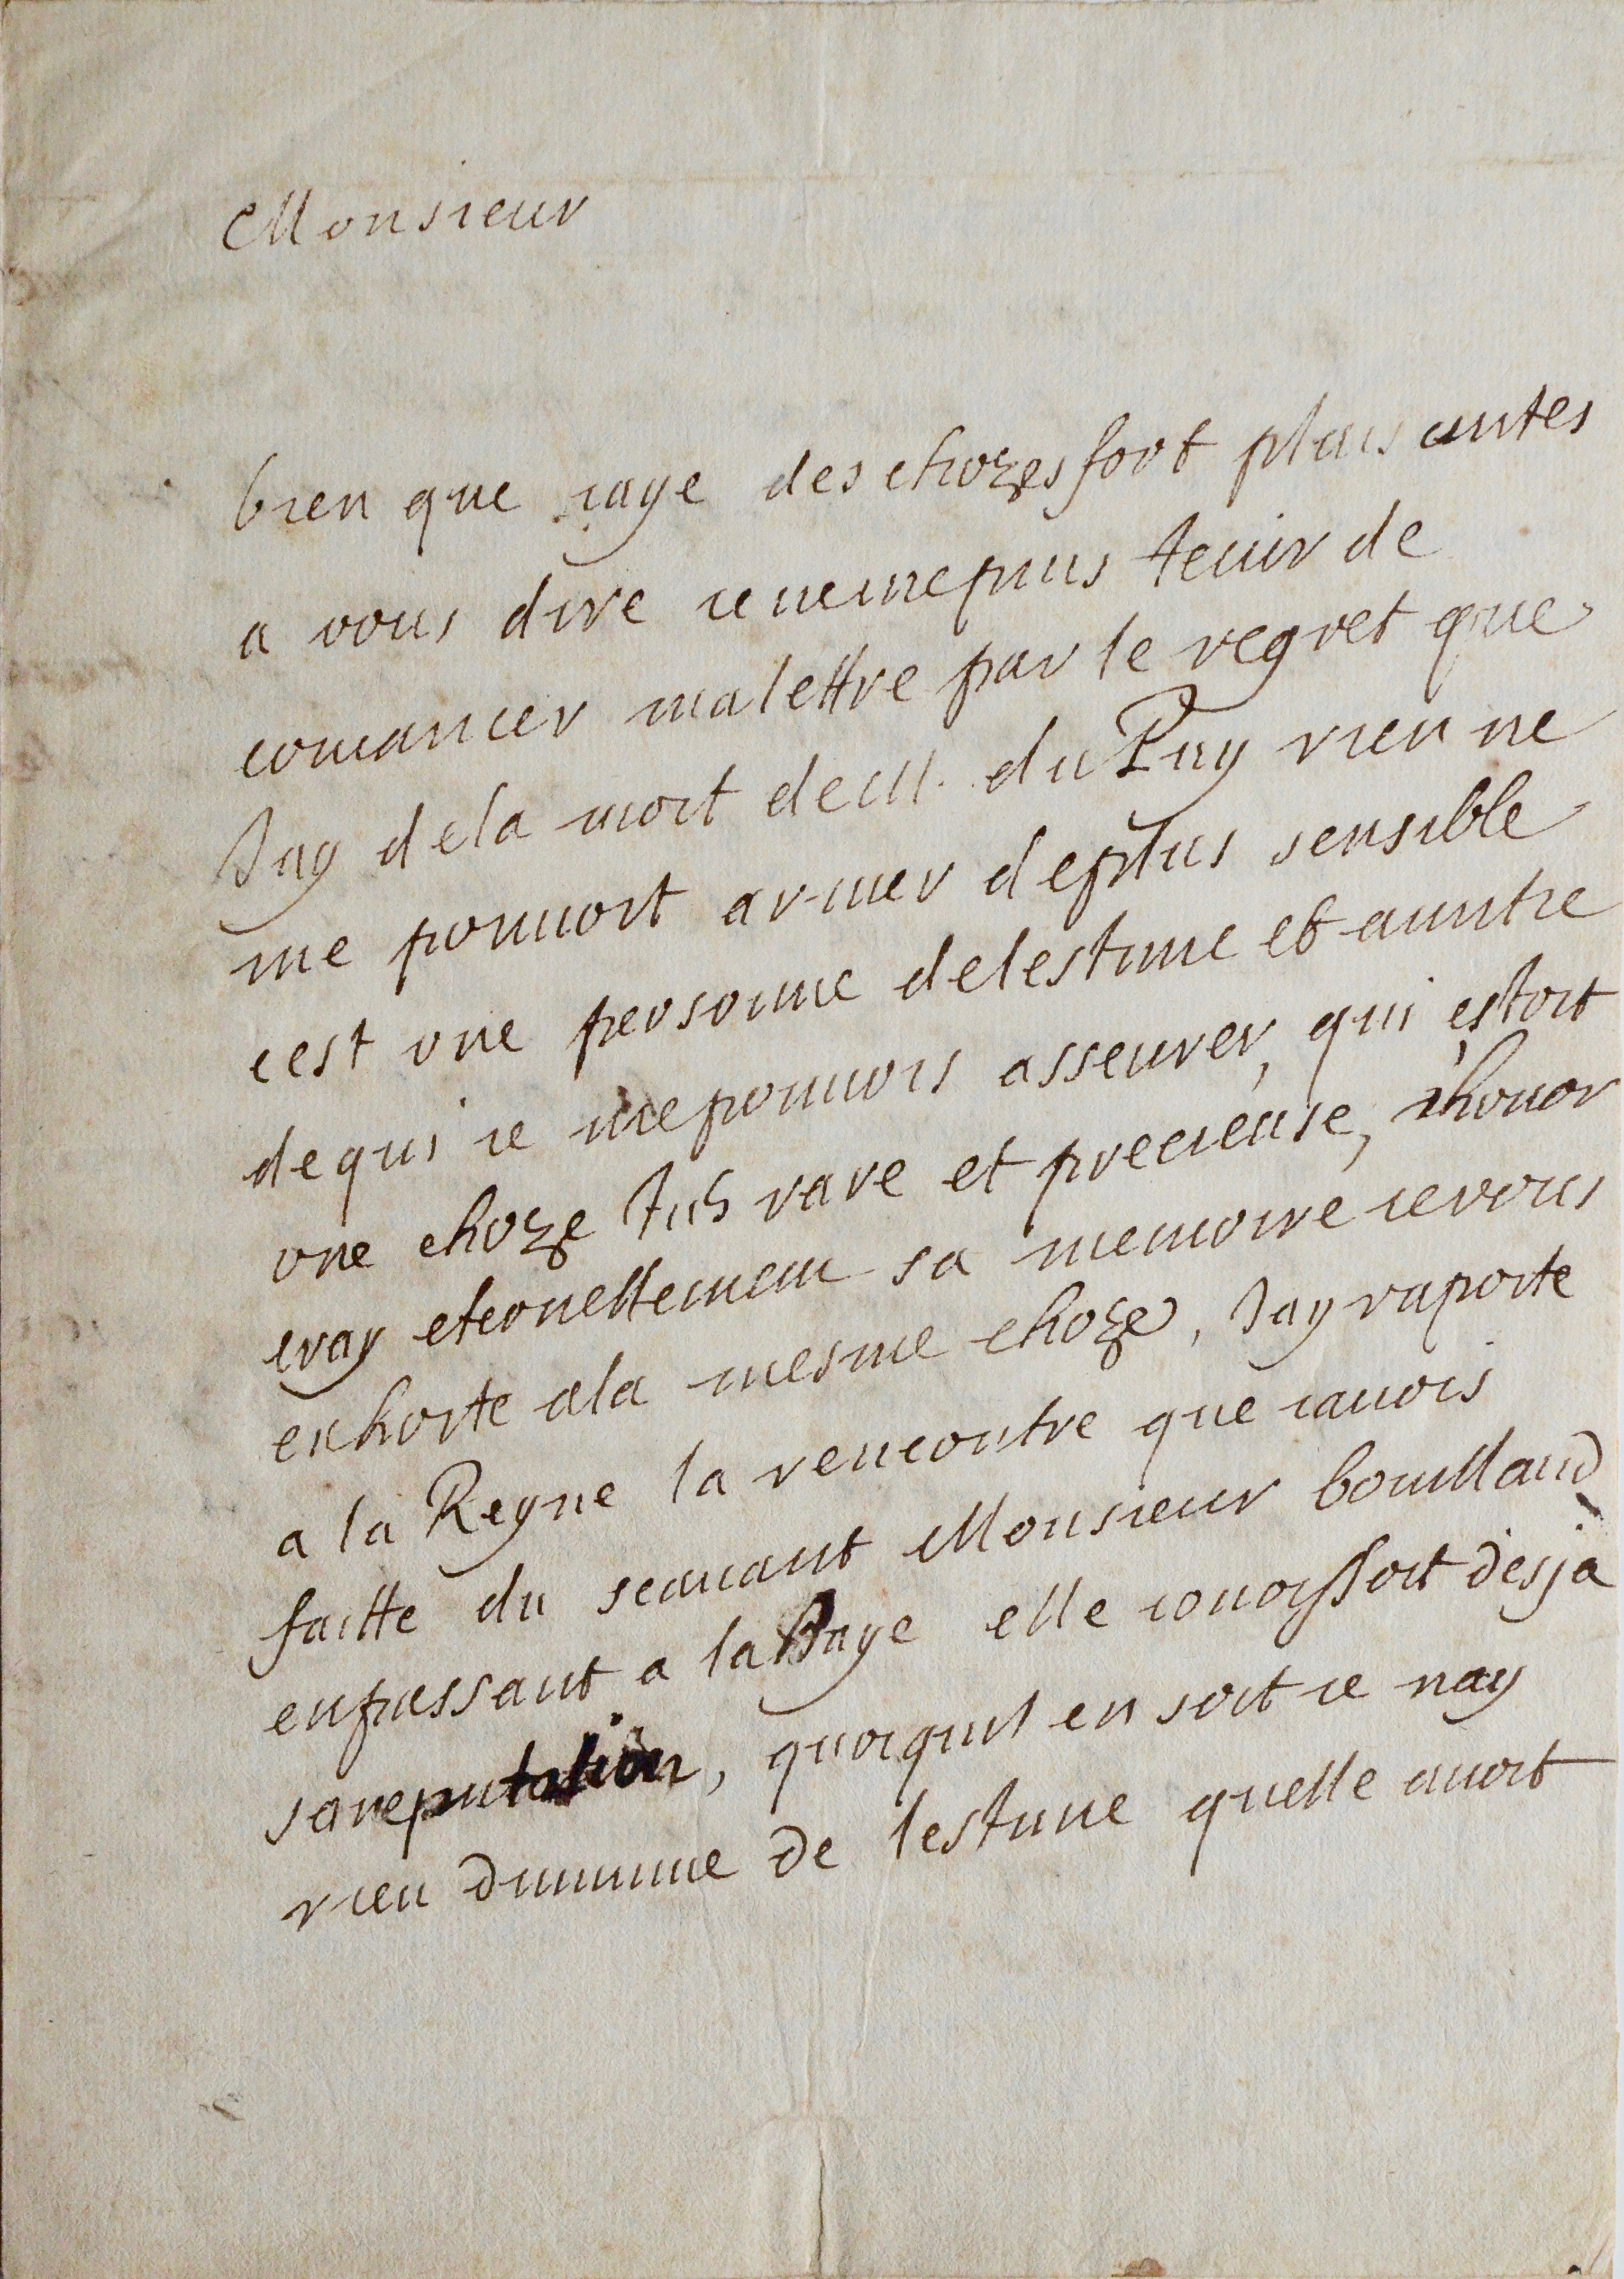 Monsieur
bien que iaye des chozes fort plaisantes
a vous dire ie ne me puis tenir de
comancer ma lettre par le regret que
Jay de la mort de M. du Puy rien ne
me pouuoit ariuer de plus sensible
cest vne personne de lestime et
de qui ie me pouuois asseurer, qui estoit
vne choze rare et precieuse, ihonor
eray eternellement sa memoire ie vous
exhorte a la mesme choze, Jay raporte
a la Reyne la rencontre que iauois
faitte du scauant Monsieur bouilland
en passant a la Haye elle conoissoit desja
sa reputation, quoiquil en soit ie nay
rien diminue de lestime quelle auoit